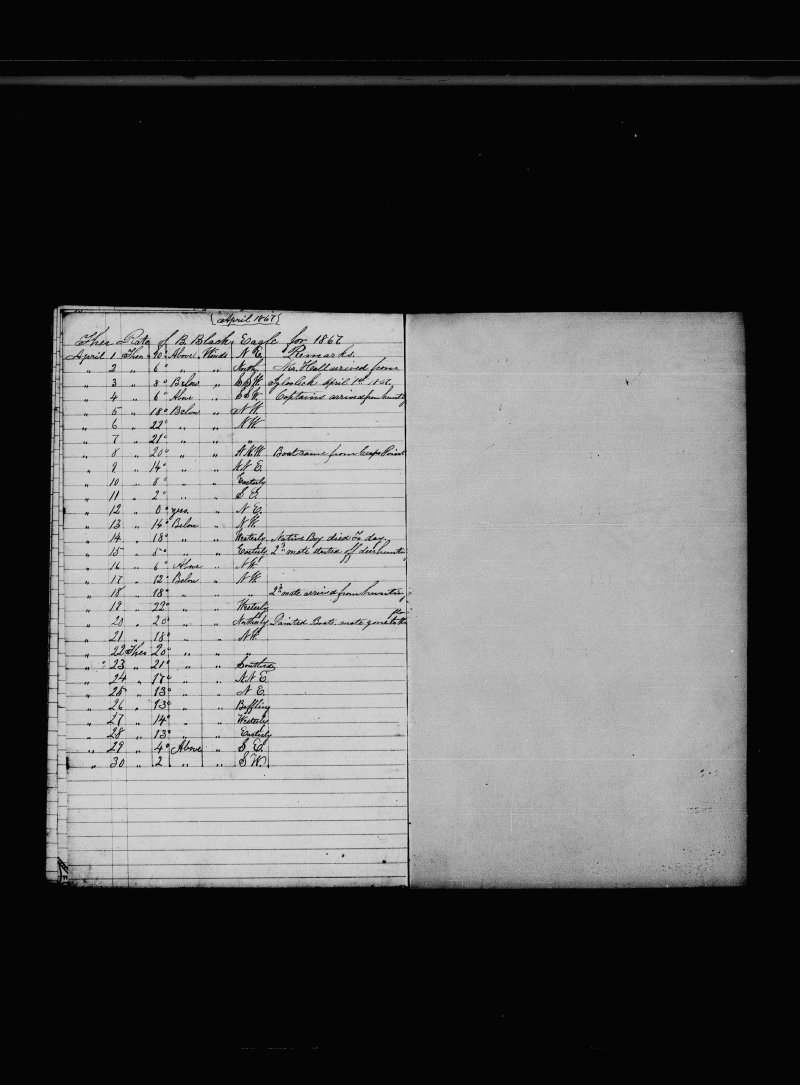 (April 1867)
Ther Rate of B. Black Eagle for 1867
April 1 Ther 10° Above Winds N. E. Remarks.
" 2 " 6° " " Mr. Hall arrived from
" 3 " 8° Below " S S W. Igloolick April 1st 1867
" 4 " 6° Above " S S W. Captains arrived from hunting
" 5 " 18° Below " N W.
" 6 " 22° " " N W.
" 7 " 21° " " "
" 8 " 20° " " Boat came from Point
" 9 " 14° " " N N E.
" 10 " 8° " " Easterly
" 11 " 2° " " S E.
" 12 " 0° " N E.
" 13 " 14° Below " N W.
" 14 " 18° " " Westerly Native Boy died To day.
" 15 " 5° " " Easterly 2d mate started off deer hunting
" 16 " 6° Above " N W
" 17 " 12° Below " N W.
" 18 " 18° " " " 2d mate arrived from hunting
" 19 " 22° " " Westerly
" 20 " 20° " " Northerly Painted Boats. mate gone to the
" 21 " 18° " " N W.
" 22 Ther 20° " " "
" 23 " 21° " " Southerly
" 24 " 17° " " N N E
" 25 " 13° " " N E.
" 26 " 13° " " Baffling
" 27 " 14° " " Westerly
" 28 " 13° " " Easterly
" 29 " 4° Above " S E.
" 30 " 2 " " S W.